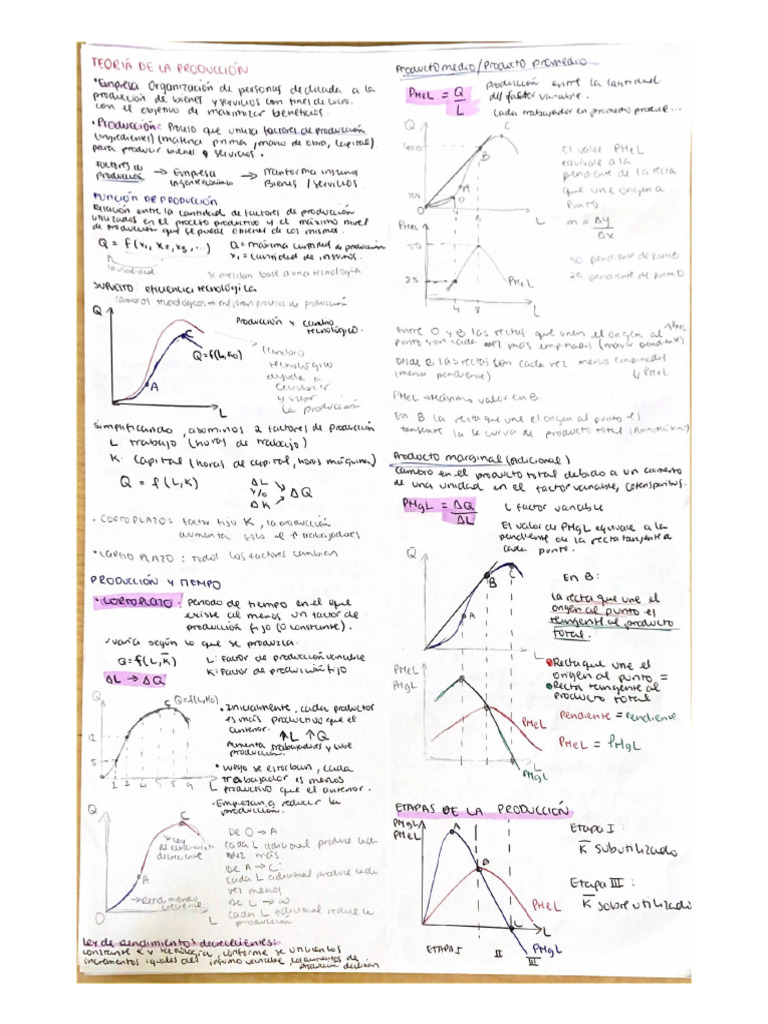 TEORÍA DE LA PRODUCCIÓN
• Empresa: Organización de personas dedicada a la
producción de bienes y servicios con fines de lucro.
con el objetivo de maximizar beneficios.
• Producción: Proceso que utiliza factores de producción
(ingredientes) (materia prima, mano de obra, capital)
para producir bienes o servicios.
Factores de → Empresa → Transforma insumos
producción Bienes / servicios.
FUNCIÓN DE PRODUCCIÓN
Relación entre la cantidad de factores de producción
utilizados en el proceso productivo y el máximo nivel
de producción que se puede obtener de los mismos.
Q = f(x₁, x₂, x₃, ...) Q = máxima cantidad de producción
x₁ = cantidad de insumos.
base a una tecnología
SUPUESTO: eficiencia tecnológica
cambios tecnológicos → mejoran proceso de producción
Q
Producción y cambio
tecnológico.
C
Q=f(L,K₀)
A
L
cambio
tecnológico
ayuda a
cambiar
y subir
la producción
simplificando, asumimos 2 factores de producción
L trabajo (horas de trabajo)
K: Capital (horas de capital, horas máquina)
Q = f(L,K) ΔL
y/o → ΔQ
ΔK
• CORTO PLAZO: factor fijo K, la producción
aumenta solo si ↑ trabajadores
• LARGO PLAZO: todos los factores cambian
PRODUCCIÓN Y TIEMPO
• CORTO PLAZO: Periodo de tiempo en el que
existe al menos un factor de
producción fijo (o constante).
varía según lo que se produzca.
Q=f(L,K̄) L: Factor de producción variable
K: Factor de producción fijo
ΔL → ΔQ
Q
C
Q=f(L,K₀)
12
5
L
• Inicialmente, cada productor
es más productivo que el
anterior.
↑L ↑Q
Aumenta trabajadores y sube
producción.
• Luego se estorban, cada
trabajador es menos
productivo que el anterior.
• Empiezan a reducir la
producción.
Q
C
→ Ley
de rendimiento
decreciente
A
→ Rendimiento
creciente
L
De O → A
cada L adicional produce cada
vez más
De A → C:
cada L adicional produce cada
vez menos
De C → ∞
cada L adicional reduce la
producción
Ley de rendimientos decrecientes:
constante K y tecnología, conforme se utilicen los
incrementos iguales del insumo variable, los aumentos de
producción declinan
Producto medio / Producto promedio
PMeL = Q/L
producción entre la cantidad
del factor variable.
cada trabajador en promedio produce...
Q
400
100
B
C
A
D
L
El valor PMeL
equivale a la
pendiente de la recta
que une origen a
punto.
m = Δy/Δx
50 pendiente de punto B
25 pendiente de punto D
PMeL
50
25
PMeL
4 8 L
Entre O y B las rectas que unen el origen al ↑PMeL
punto son cada vez más empinadas (mayor pendiente)
Desde B las rectas son cada vez menos empinadas
(menor pendiente) ↓PMeL
PMeL → máximo valor en B.
En B la recta que une el origen al punto es
tangente a la curva de producto total
Producto marginal (adicional)
Cambio en el producto total debido a un aumento
de una unidad en el factor variable, ceteris paribus.
PMgL = ΔQ/ΔL
L factor variable
El valor de PMgL equivale a la
pendiente de la recta tangente a
cada punto.
Q
C
B
A
L
En B:
la recta que une el
origen al punto es
tangente al producto
total.
PMeL
PMgL
PMeL
L
PMgL
Recta que une el
origen al punto =
Recta tangente al
producto total
Pendiente = Pendiente
PMeL = PMgL
ETAPAS DE LA PRODUCCIÓN
PMgL
PMeL
A
B
PMeL
C
L
PMgL
ETAPA I II III
Etapa I:
K̄ subutilizado
Etapa III:
K̄ sobre utilizado